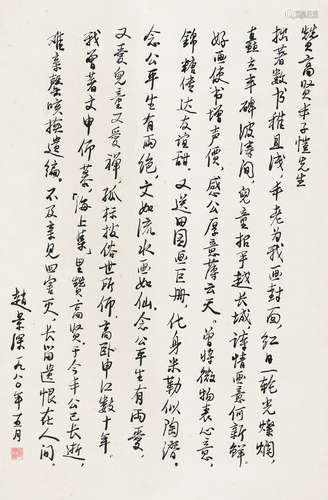 赞高贤丰子恺先生
拙著数书稚且浅，丰老为我画封面，红日一轮光灿烂，
矗立丰碑波涛间，儿童招手越长城，诗情画意何新鲜
好画使书增声价，感公厚意薄云天。曾将微物表心意，
锦糖传达友谊甜。又送田园画巨册，化身米勒似陶潜
念公平生有两绝，文如流水画如仙。念公平生有两爱，
又爱儿童又爱禅，孤标拔俗世所仰，高卧申江数十年。
我曾著文申仰慕，海上集里赞高贤。于今丰公已长逝，
难亲謦欬抚遗编。不及亲见四害灭，长留遗恨在人间。
赵景深一九八〇年五月